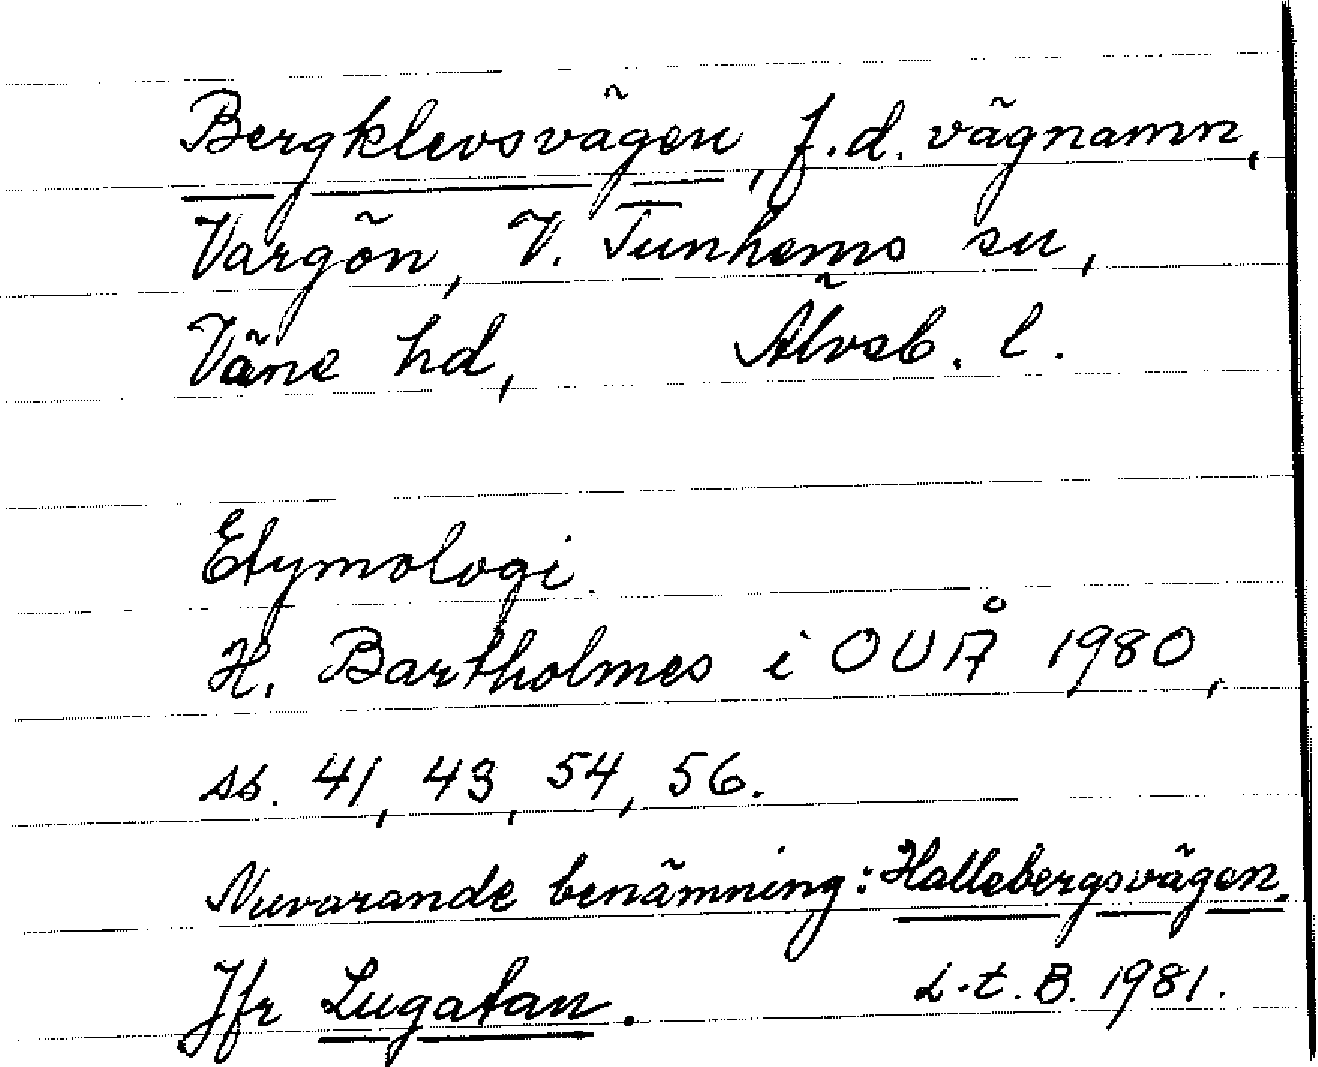 Bergklevsvägen, f.d. vägnamn,
Vargön, V. Tunhems sn,
Väne hd, Älvsb. l.
Etymologi.
H. Bartholmes i OUÅ 1980,
ss. 41, 43, 54, 56.
Nuvarande benämning: Hallebergsvägen.
Jfr Lugatan. L.t.B. 1981.